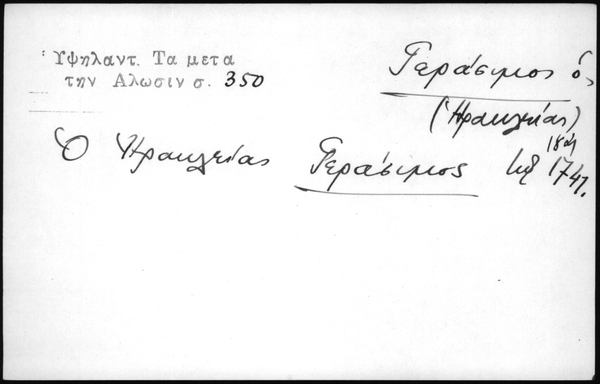 Ὑψηλαντ. Τα μετα
την Αλωσιν σ. 350
Γεράσιμος ὁ
(Ἡρακλείας)
Ὁ Ἡρακλείας Γεράσιμος 1741.